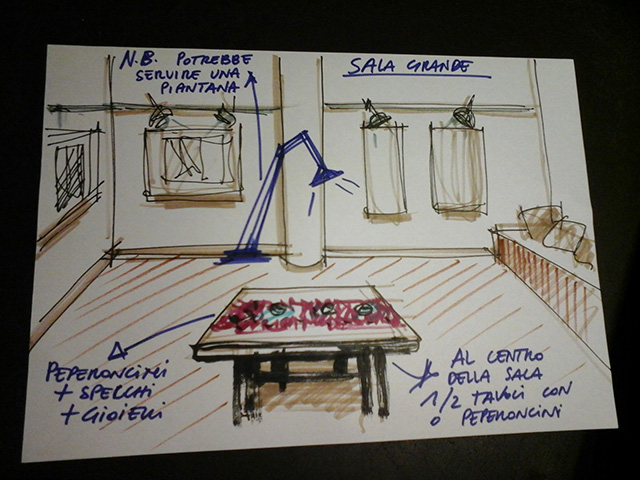 N.B. POTREBBE
SERVIRE UNA
PIANTANA
SALA GRANDE
PEPERONCINI
+ SPECCHI
+ GIOIELLI
AL CENTRO
DELLA SALA
1/2 TAVOLI CON
O PEPERONCINI